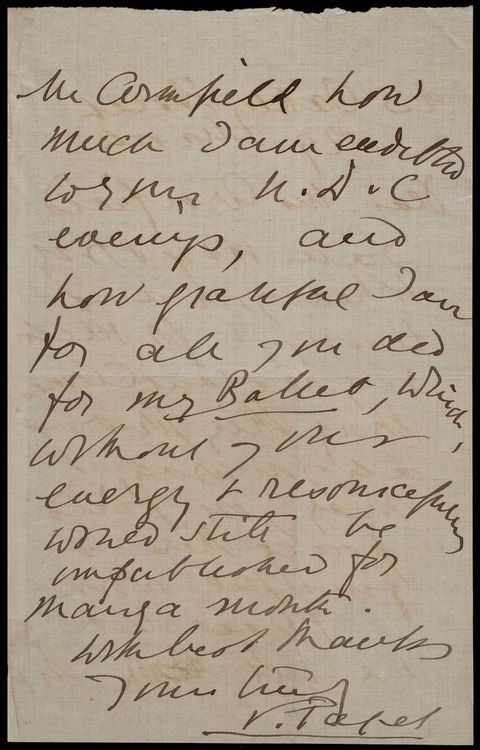 Mr Cornfield how
much I am endebted
to you
evenings, and
how grateful I am
for all you did
for my Ballet, which,
without your
energy & resourcefulness
would still be
unpublished for
many a month.
With best thanks
yours truly